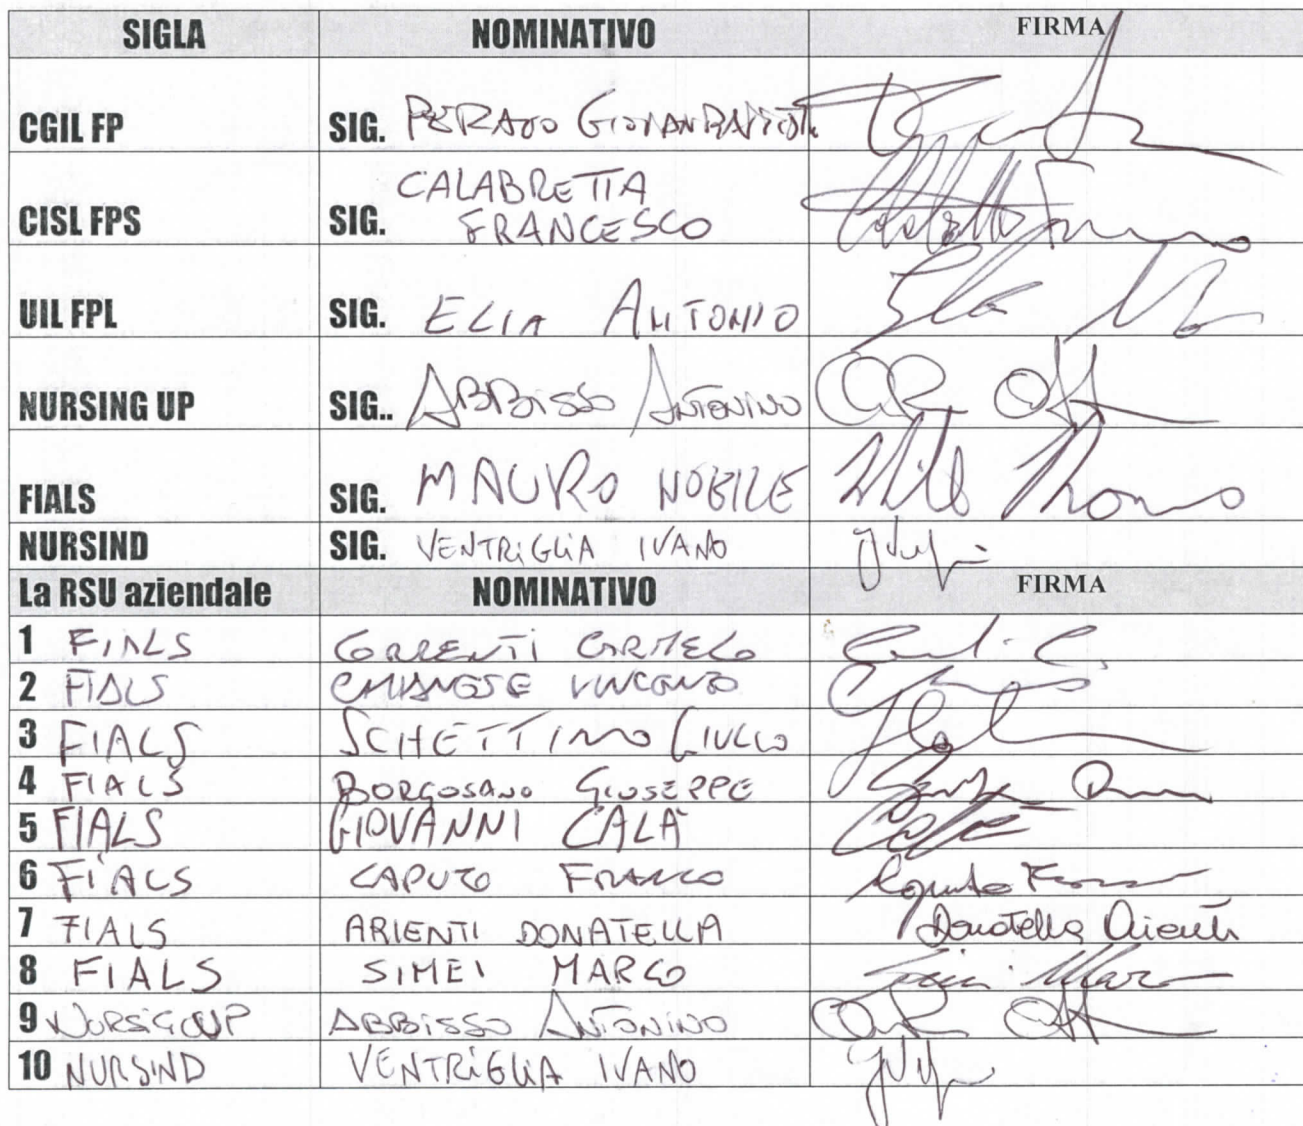 SIGLA NOMINATIVO FIRMA
CGIL FP SIG.
CALABRETTA
CISL FPS SIG. FRANCESCO
UIL FPL SIG. ELIA ANTONIO
NURSING UP SIG.. ABBISSO ANTONINO
FIALS SIG. MAURO NOBILE
NURSIND SIG. VENTRIGLIA IVANO
La RSU aziendale NOMINATIVO FIRMA
1 FIALS CORRENTI CARMELO
2 FIALS CHIANESE VINCENZO
3 FIALS SCHETTINO GIULIO
4 FIALS BORGOSANO GIUSEPPE
5 FIALS GIOVANNI CALÀ
6 FIALS CAPUTO FRANCO
7 FIALS ARIENTI DONATELLA Donatella Arienti
8 FIALS SIMEI MARCO
9 NORSIGUP ABBISSO ANTONINO
10 NURSIND VENTRIGLIA IVANO